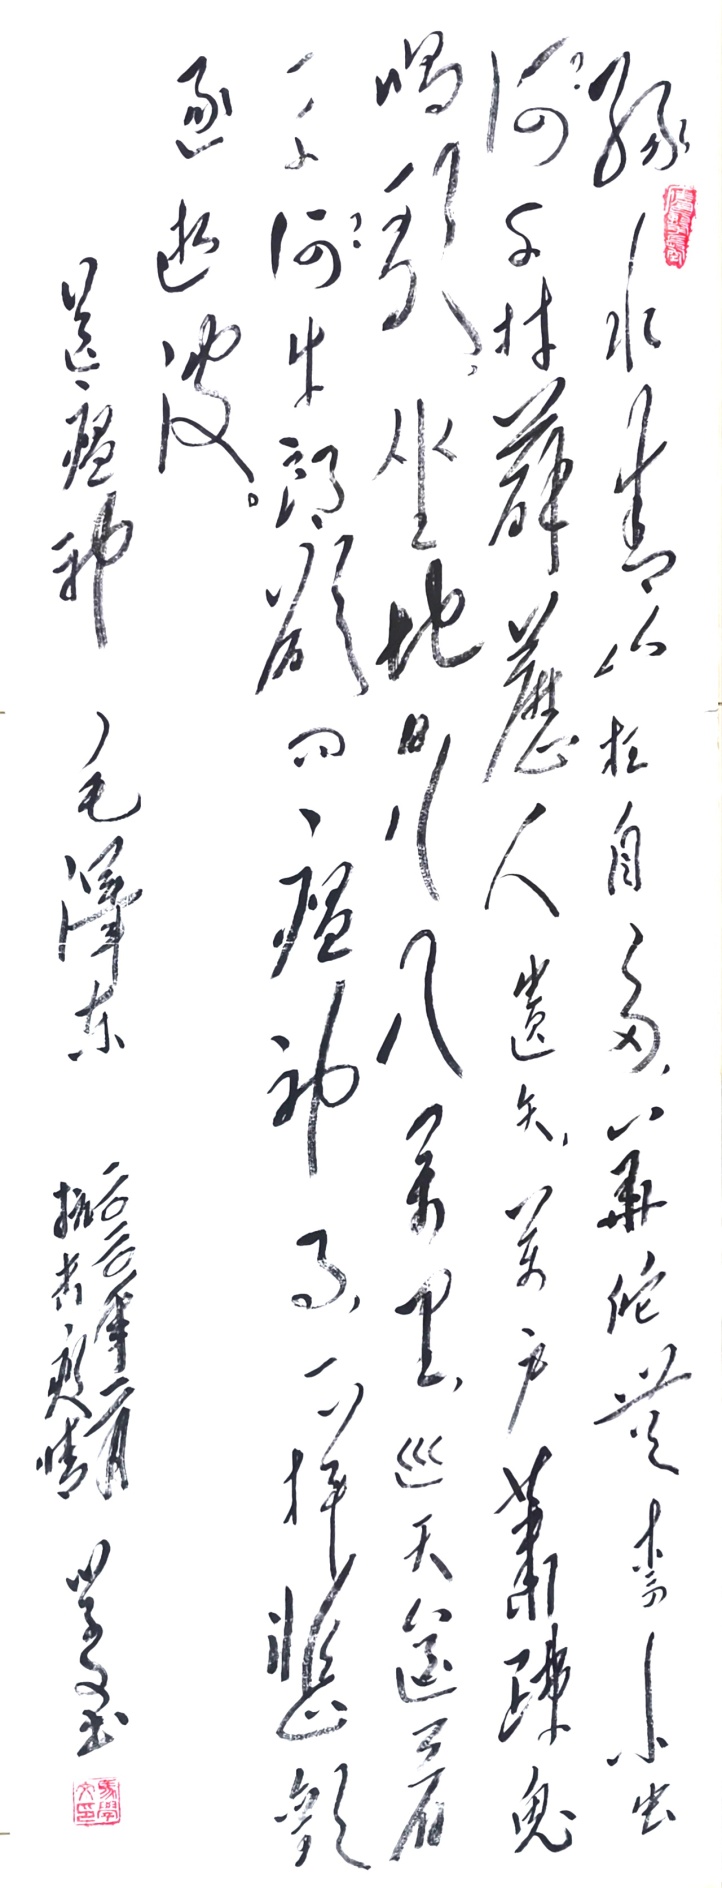 綠水青山枉自多，華佗無奈小虫
何千村薜藶人遺矢，萬户蕭疎鬼
唱歌，坐地日行八萬里，巡天遥看
一千河牛郎欲问瘟神事，一样悲歡
逐逝波。
送瘟神 毛澤东
二〇二〇年二月
抗击疫情 学文书